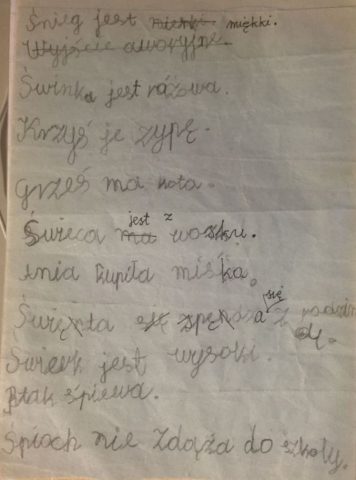 Śnieg jest mienki miękki.
Wyjście awaryjne.
Świnka jest różowa.
Krzyś je zypę.
Grześ ma kota.
Świeca ma jest z wosku.
Ania kupiła miśka.
Święta się spędza się z rodziną.
Świerk jest wysoki.
Ptak śpiewa.
Śpioch nie zdąża do szkoły.